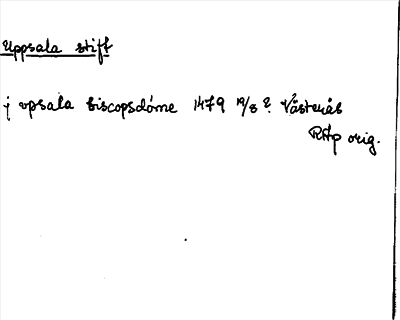 Uppsala stift
j vpsala biscopsdóme 1479 19/3 ? Västerås
RAp orig.